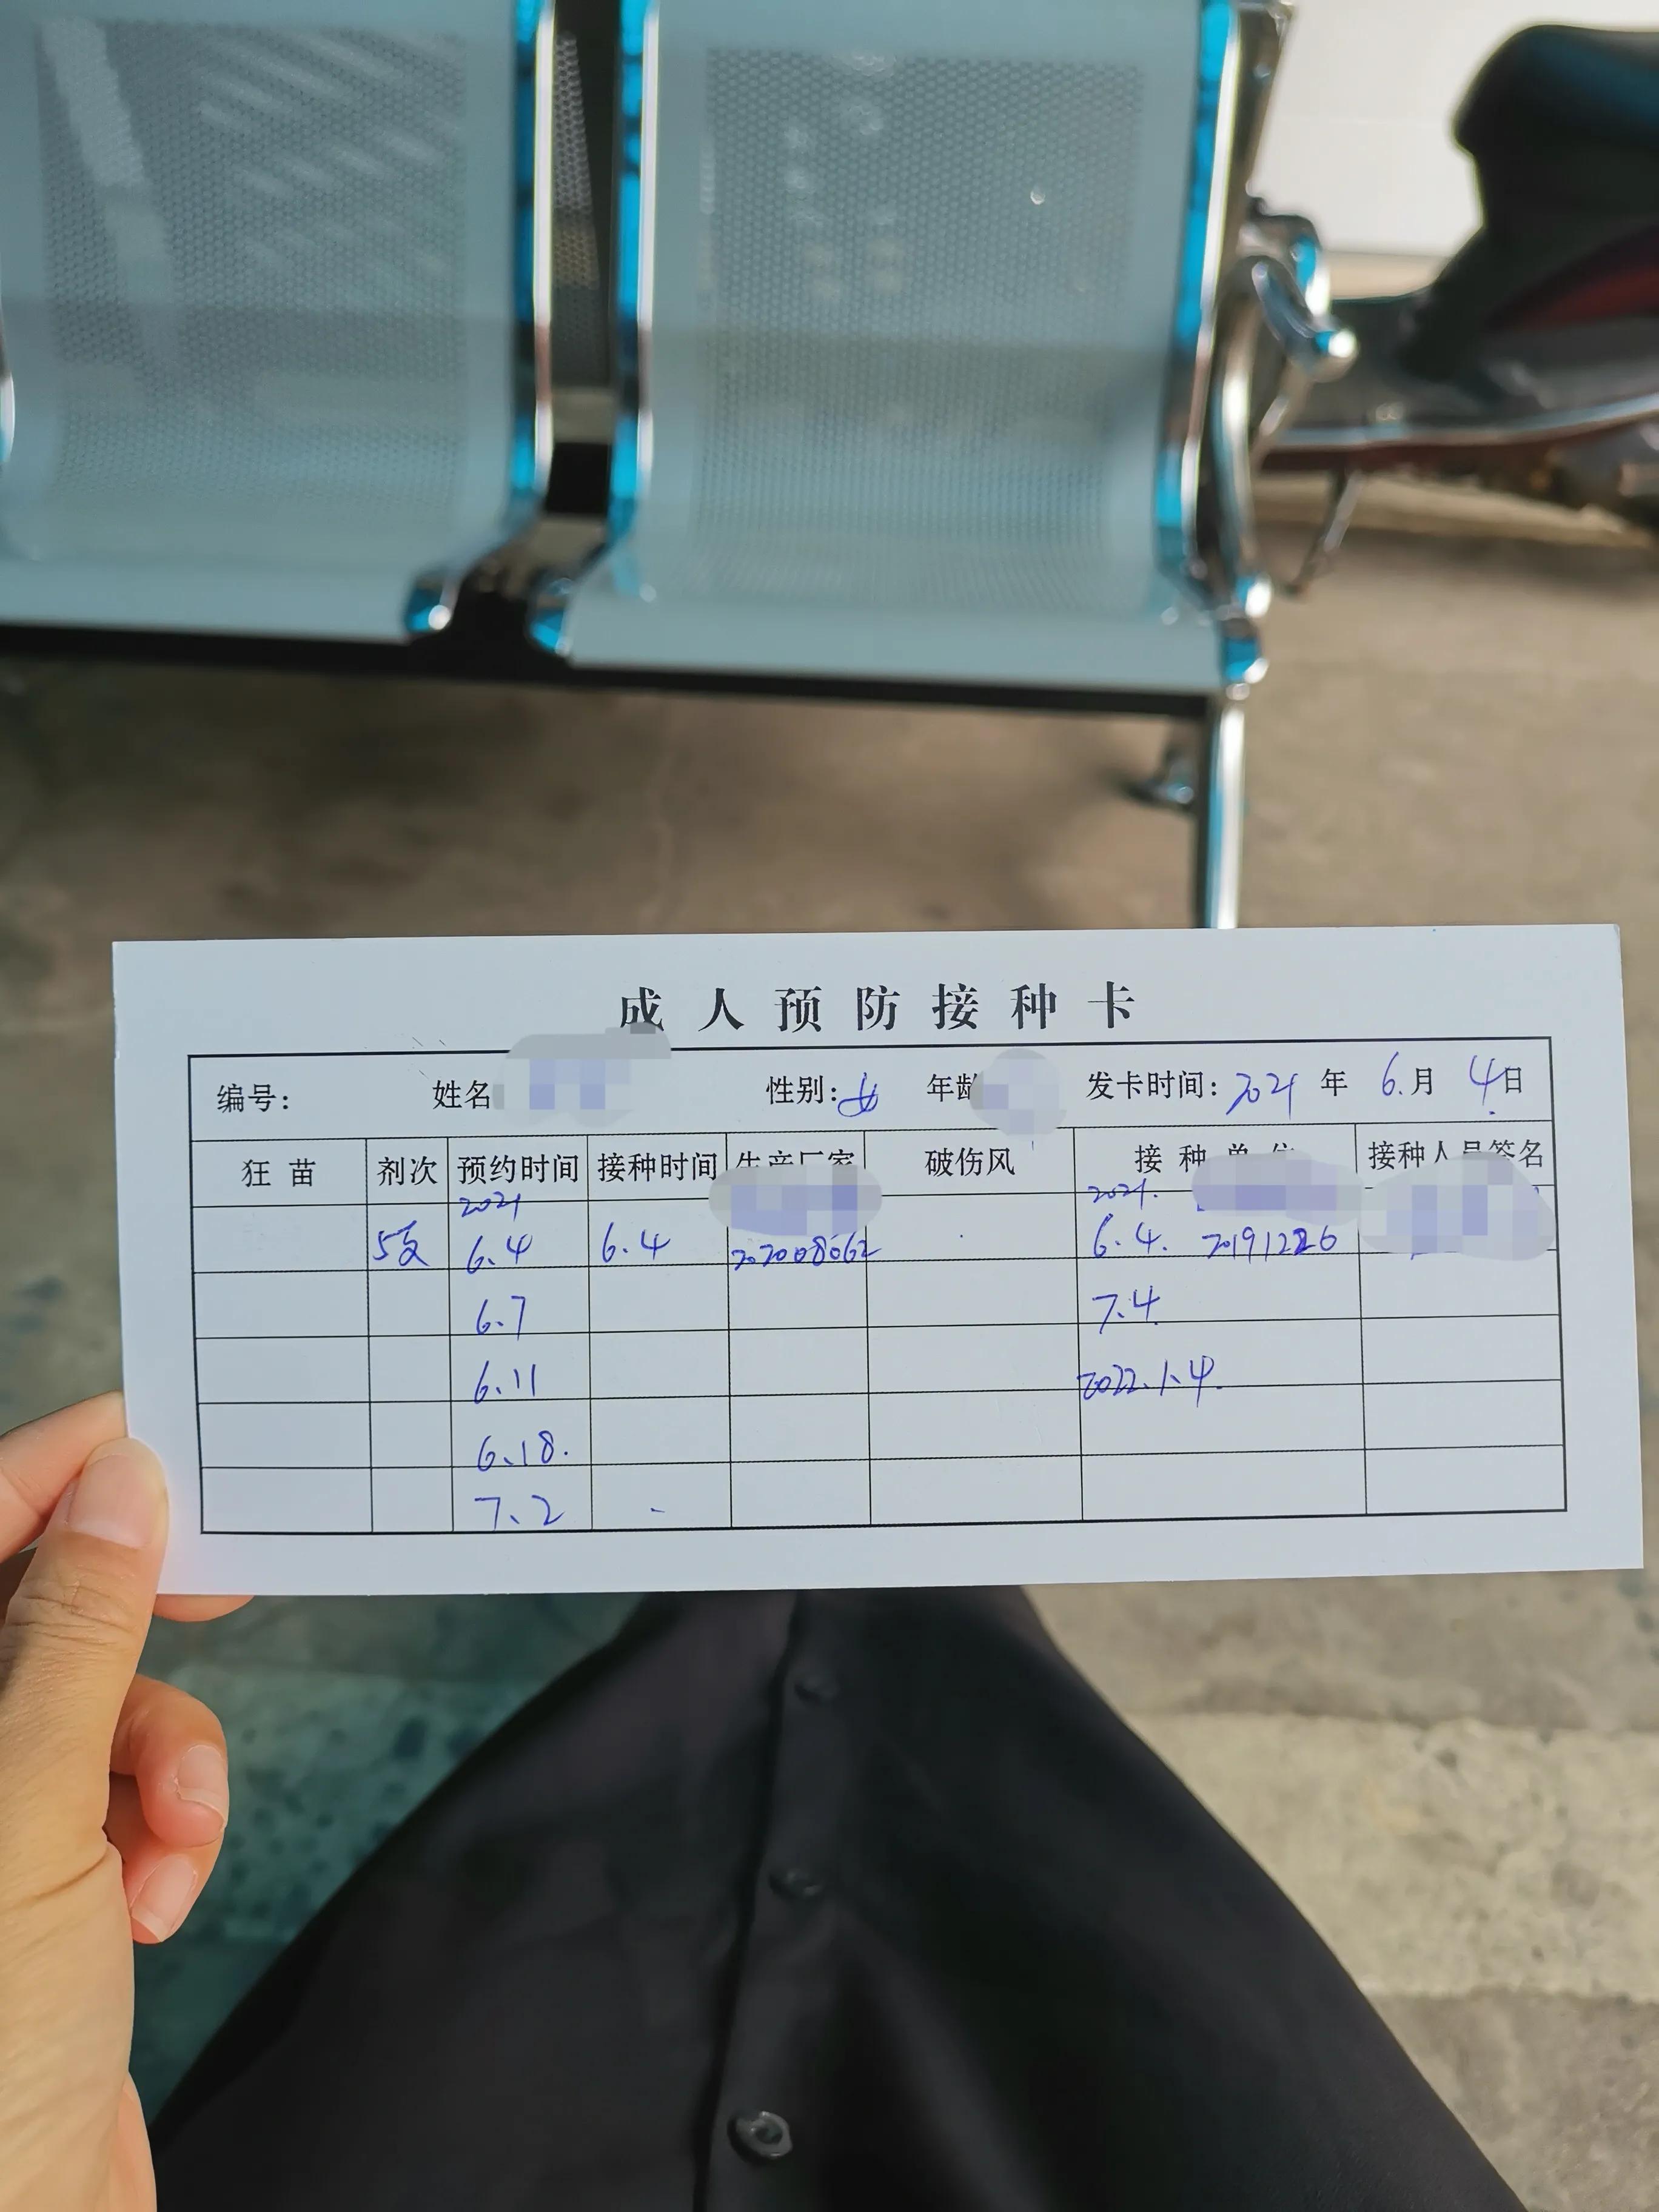 成人预防接种卡
编号: 姓名 性别:女 年龄 发卡时间:2021年6.月4.日
狂苗 剂次 预约时间 接种时间 生产厂家 破伤风 接种单位 接种人员签名
2021 2021.
5支 6.4 6.4 202008062 6.4. 20191226
6.7 7.4
6.11 2022.1.4.
6.18.
7.2